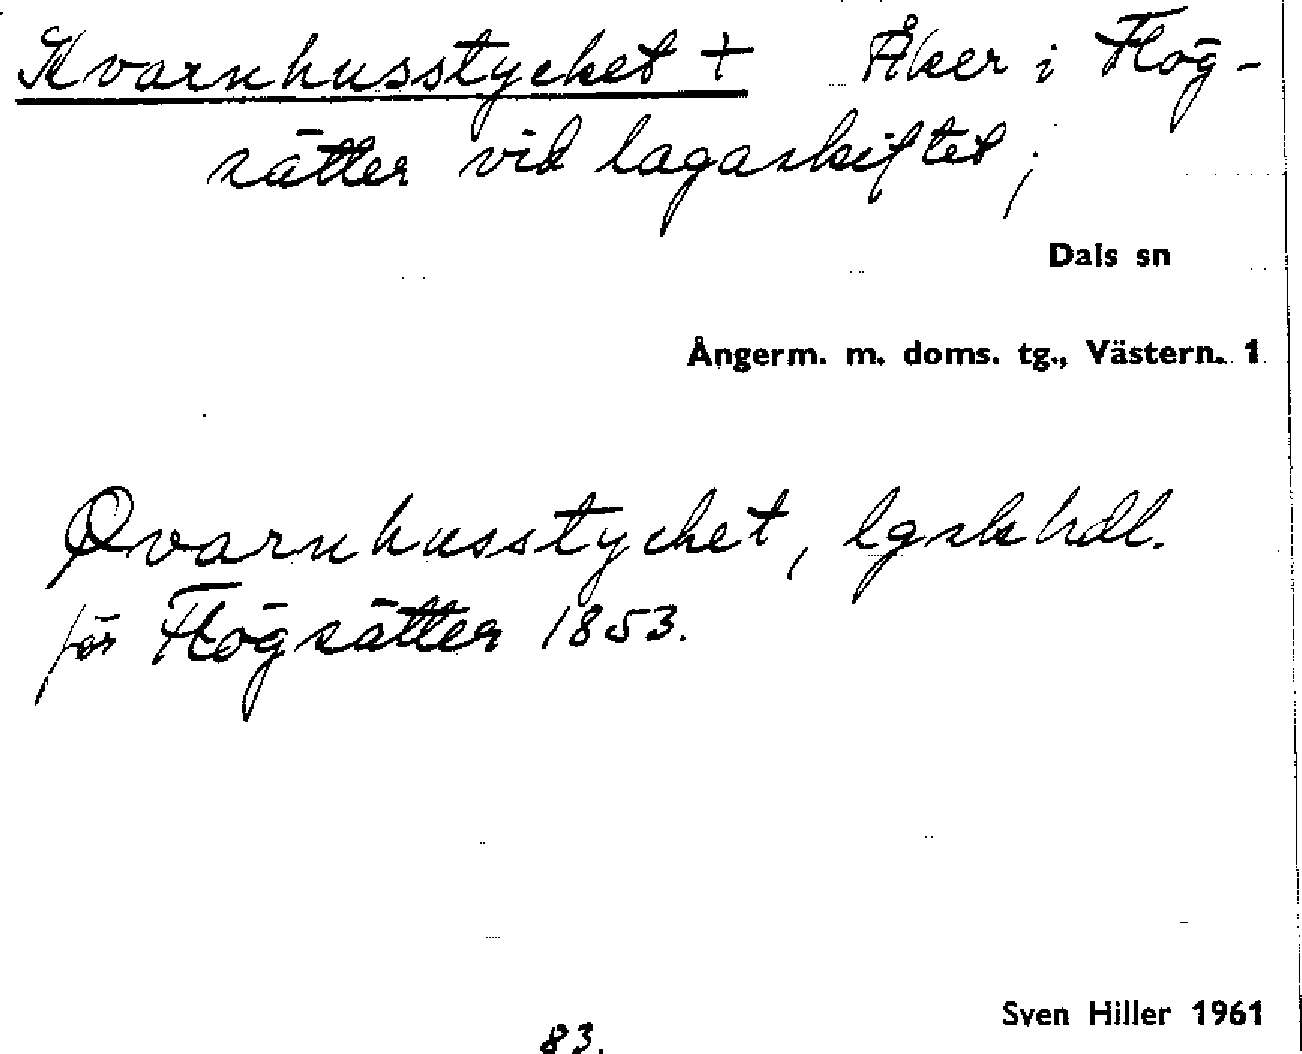 Kvarnhusstycket + Åker i Flög-
sätter vid lagaskiftet;
Dals sn
Ångerm. m. doms. tg., Västern. 1
Qvarnhusstycket, lgskhdl.
för Flögsätter 1853.
Sven Hiller 1961
83.